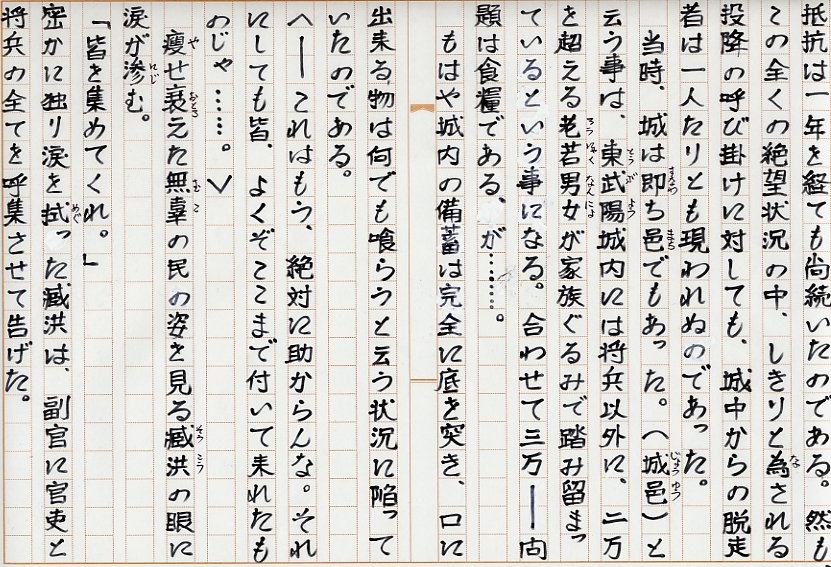 抵抗は一年を経ても尚続いたのである。然も、
この全くの絶望状況の中、しきりと為される
投降の呼び掛けに対しても、城中からの脱走
者は一人たりとも現われぬのであった。
当時、城は即ち邑でもあった。(城邑)と
云う事は、東武陽城内には将兵以外に、二万
を超える老若男女が家族ぐるみで踏み留まっ
ているという事になる。合わせて三万——問
題は食糧である、が……。
もはや城内の備蓄は完全に底を突き、口に
出来る物は何でも喰らうと云う状況に陥って
いたのである。
へ——これはもう、絶対に助からんな。それ
にしても皆、よくぞここまで付いて来れたも
のじゃ……。〉
瘦せ衰えた無辜の民の姿を見る臧洪の眼に
涙が滲む。
「皆を集めてくれ。」
密かに独り涙を拭った臧洪は、副官に官吏と
将兵の全てを呼集させて告げた。